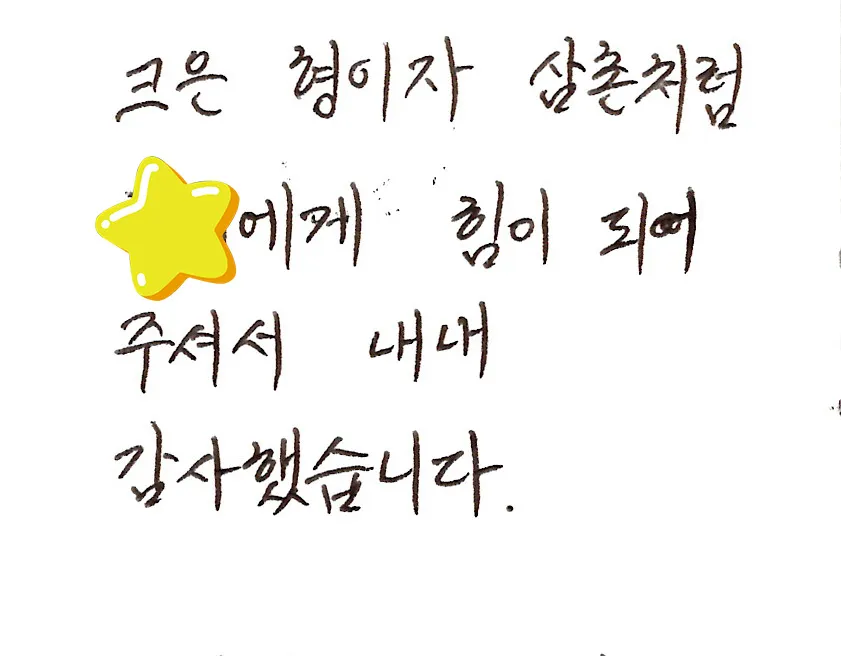 크은 형이자 삼촌처럼
에게 힘이 되어
주셔서 내내
감사했습니다.